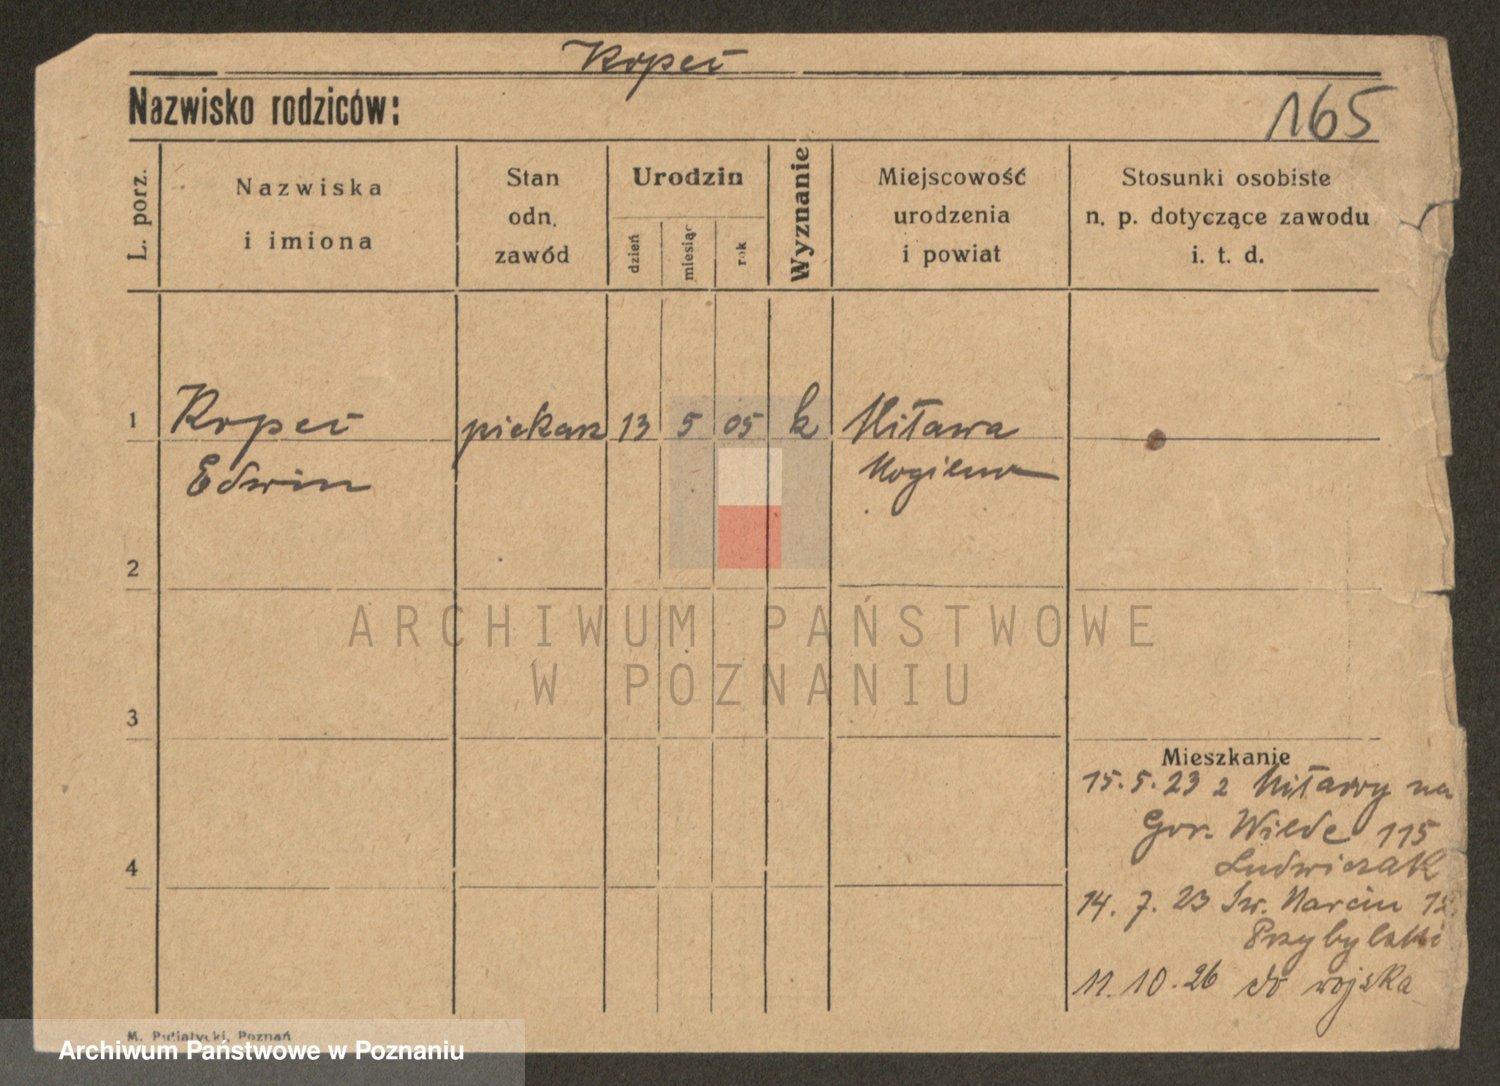 Kopeć
Nazwisko rodziców:
165
L. porz.
Nazwiska
i imiona
Stan
odn.
zawód
Urodzin
dzień
miesiąc
rok
Wyznanie
Miejscowość
urodzenia
i powiat
Stosunki osobiste
n. p. dotyczące zawodu
i. t. d.
1 Kopeć piekarz 13 5 05 k Mitawa
Edwin Mogilno
2
3
4
Mieszkanie
15.5.23 z Mitawy na
Gór. Wilde 115
Ludwiczak
14. 7. 23 Św. Marcin
Przybylski
11. 10. 26 do wojska
ARCHIWUM PAŃSTWOWE
W POZNANIU
M. Putiatycki, Poznań
Archiwum Państwowe w Poznaniu